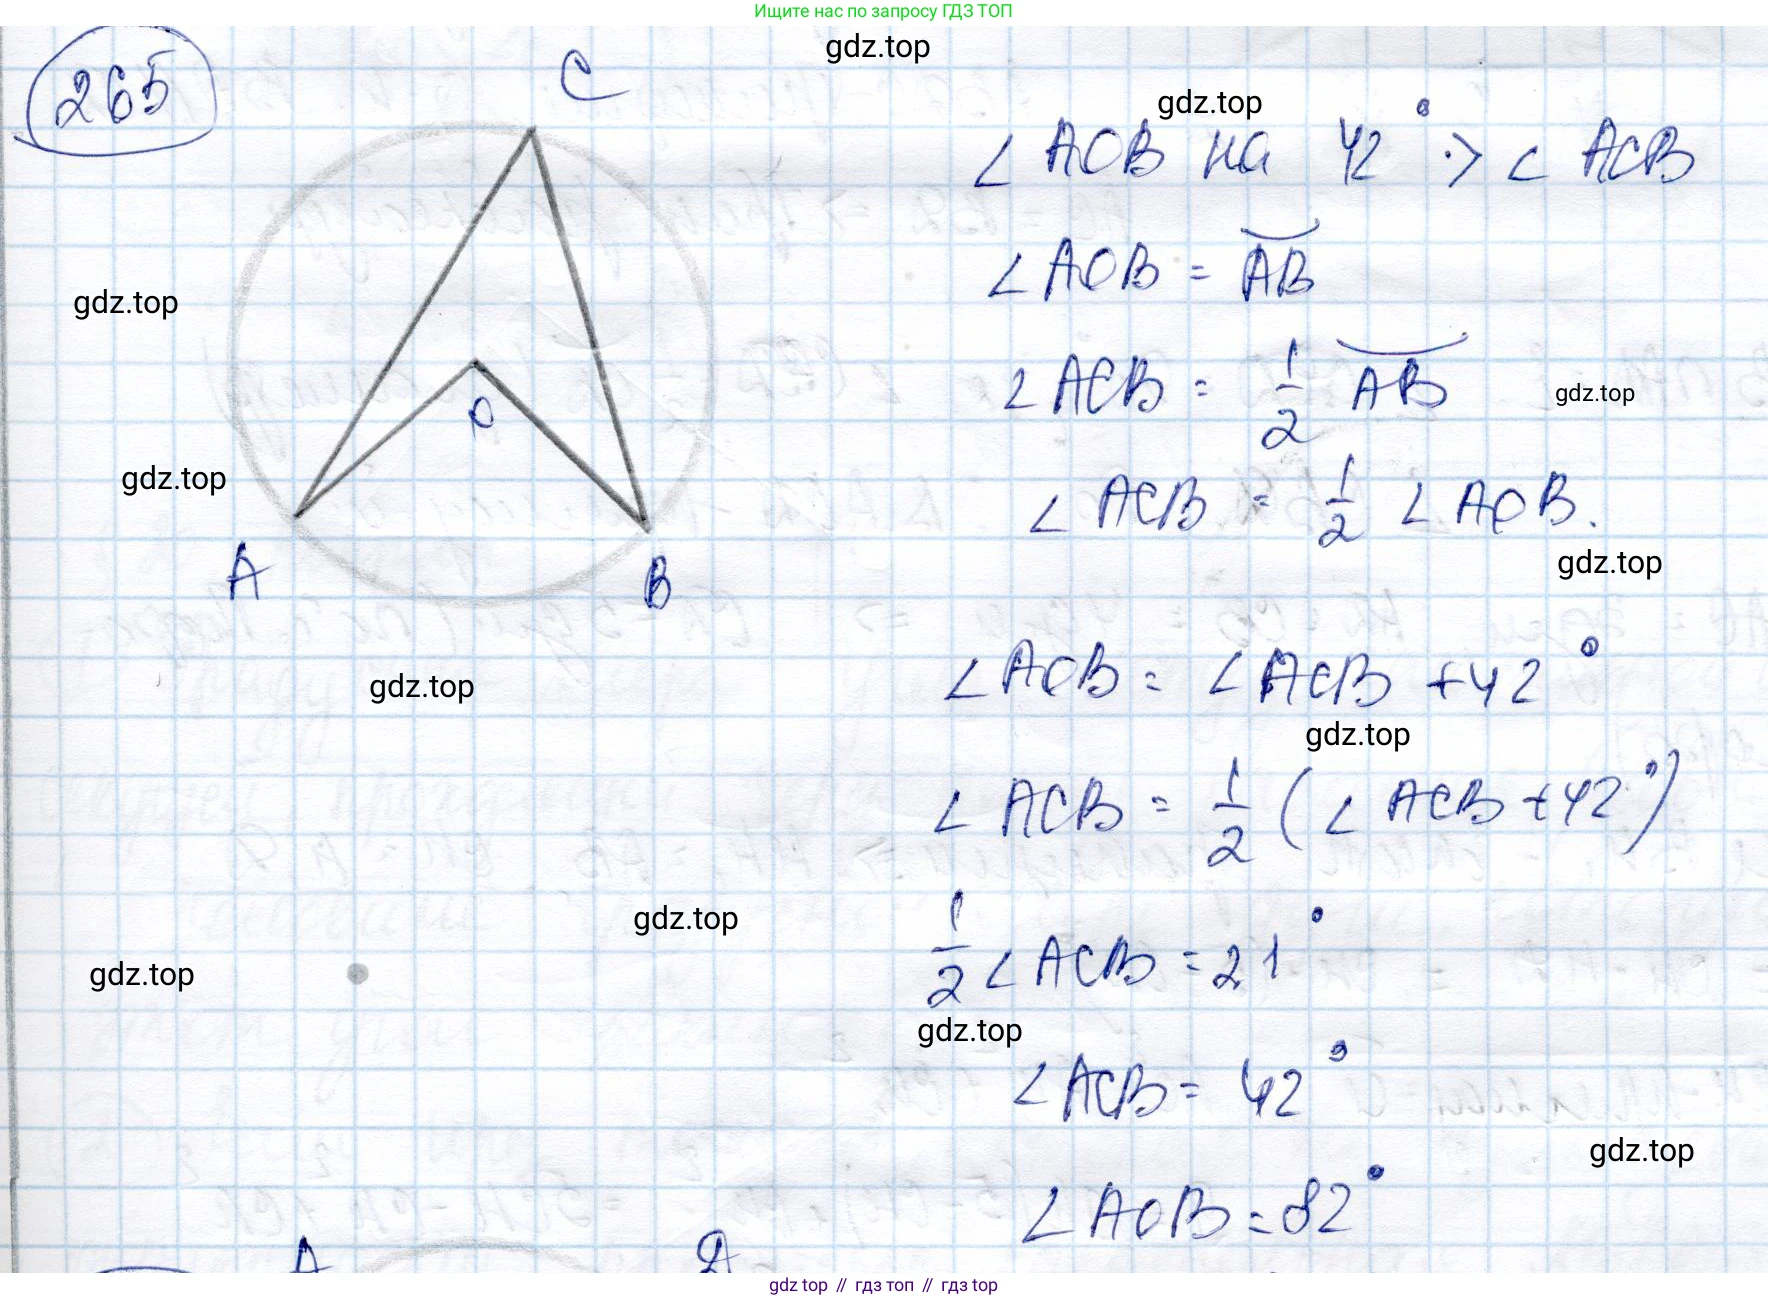 Ищите нас по запросу ГДЗ ТОП
gdz.top
265
C
gdz.top
∠ AOB на 42° > ∠ ACB
∠ AOB = AB
gdz.top
∠ ACB = 1/2 AB
gdz.top
O
gdz.top
∠ ACB = 1/2 ∠ AOB.
gdz.top
A
B
∠ AOB = ∠ ACB + 42°
gdz.top
gdz.top
∠ ACB = 1/2 (∠ ACB + 42°)
gdz.top
1/2 ∠ ACB = 21°
gdz.top
gdz.top
∠ ACB = 42°
gdz.top
∠ AOB = 82°
A
gdz top // гдз топ // gdz top